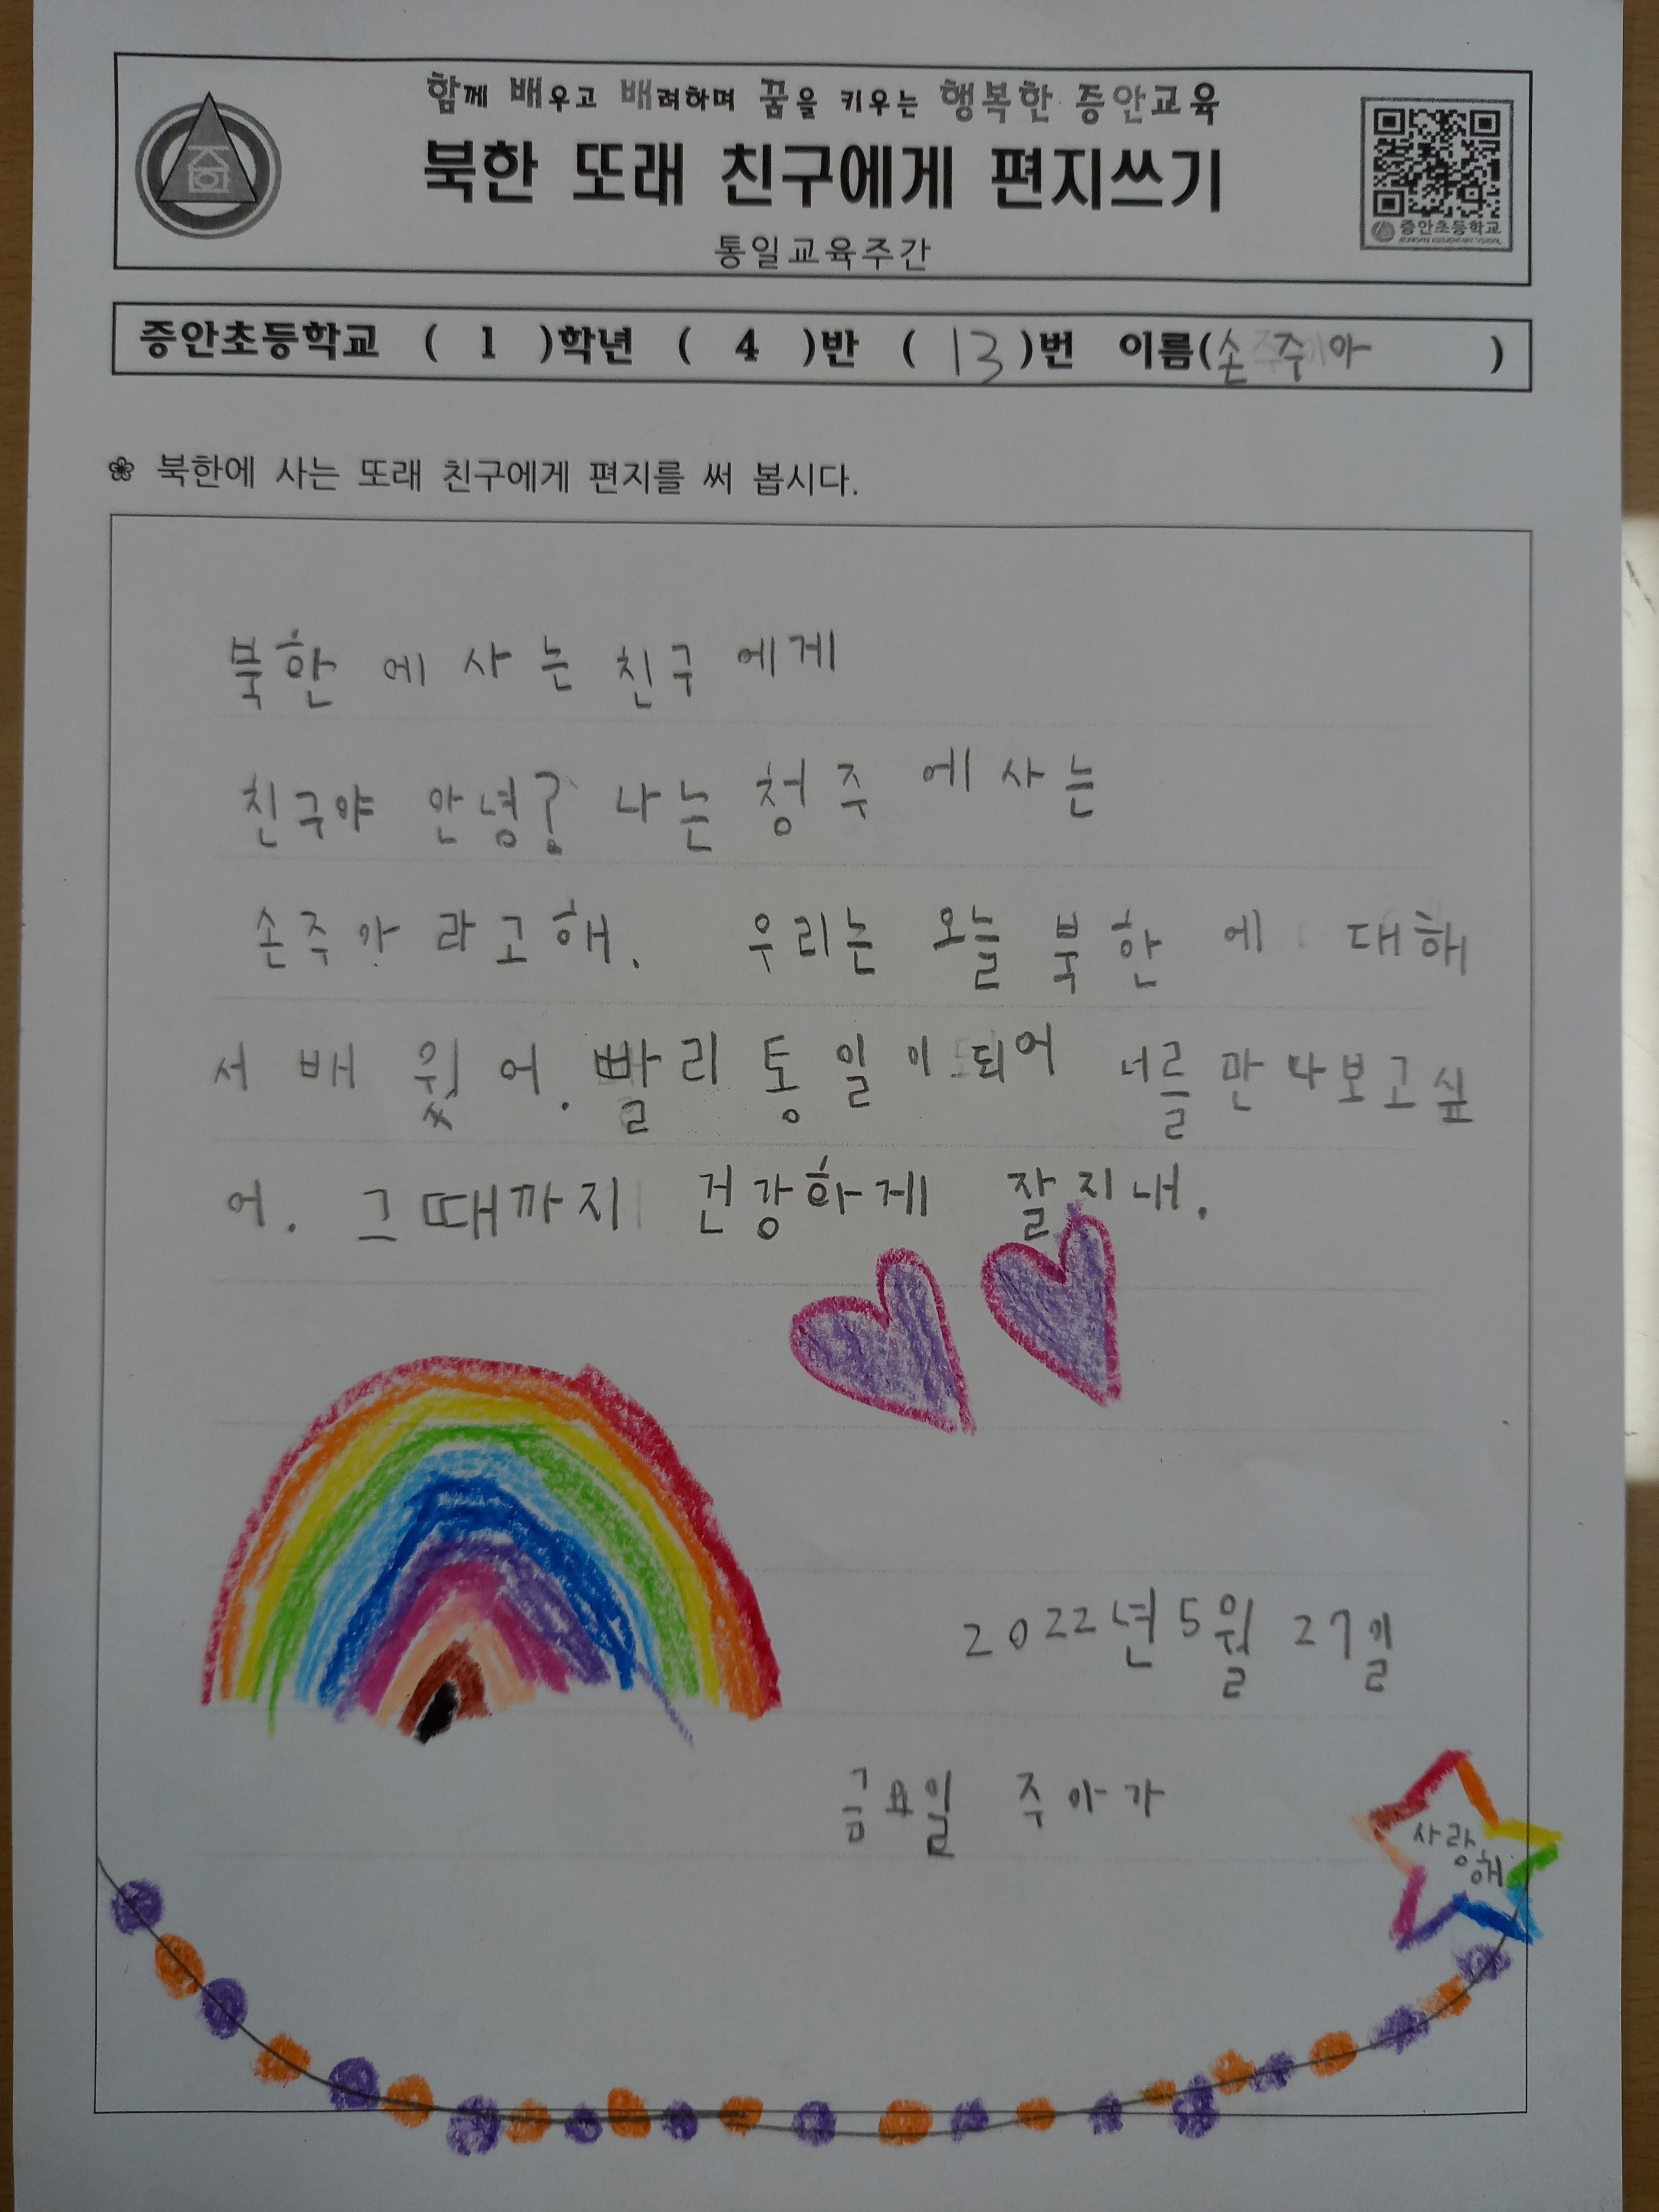 함께 배우고 배려하며 꿈을 키우는 행복한 증안교육
북한 또래 친구에게 편지쓰기
통일교육주간
증안초등학교
증안초등학교 ( 1 )학년 ( 4 )반 ( 13 )번 이름(손주아 )
❀ 북한에 사는 또래 친구에게 편지를 써 봅시다.
북한에 사는 친구에게
친구야 안녕? 나는 청주에 사는
손주아라고해. 우리는 오늘 북한에 대해
서 배웠어. 빨리 통일이 되어 너를 만나보고싶
어. 그때까지 건강하게 잘지내.
2022년 5월 27일
금요일 주아가
사랑
해